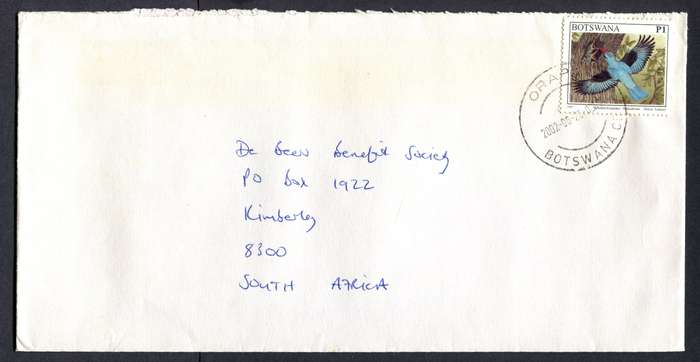 BOTSWANA P1
ORAPA
BOTSWANA
De Beers Benefit Society
PO Box 1922
Kimberley
8300
SOUTH AFRICA